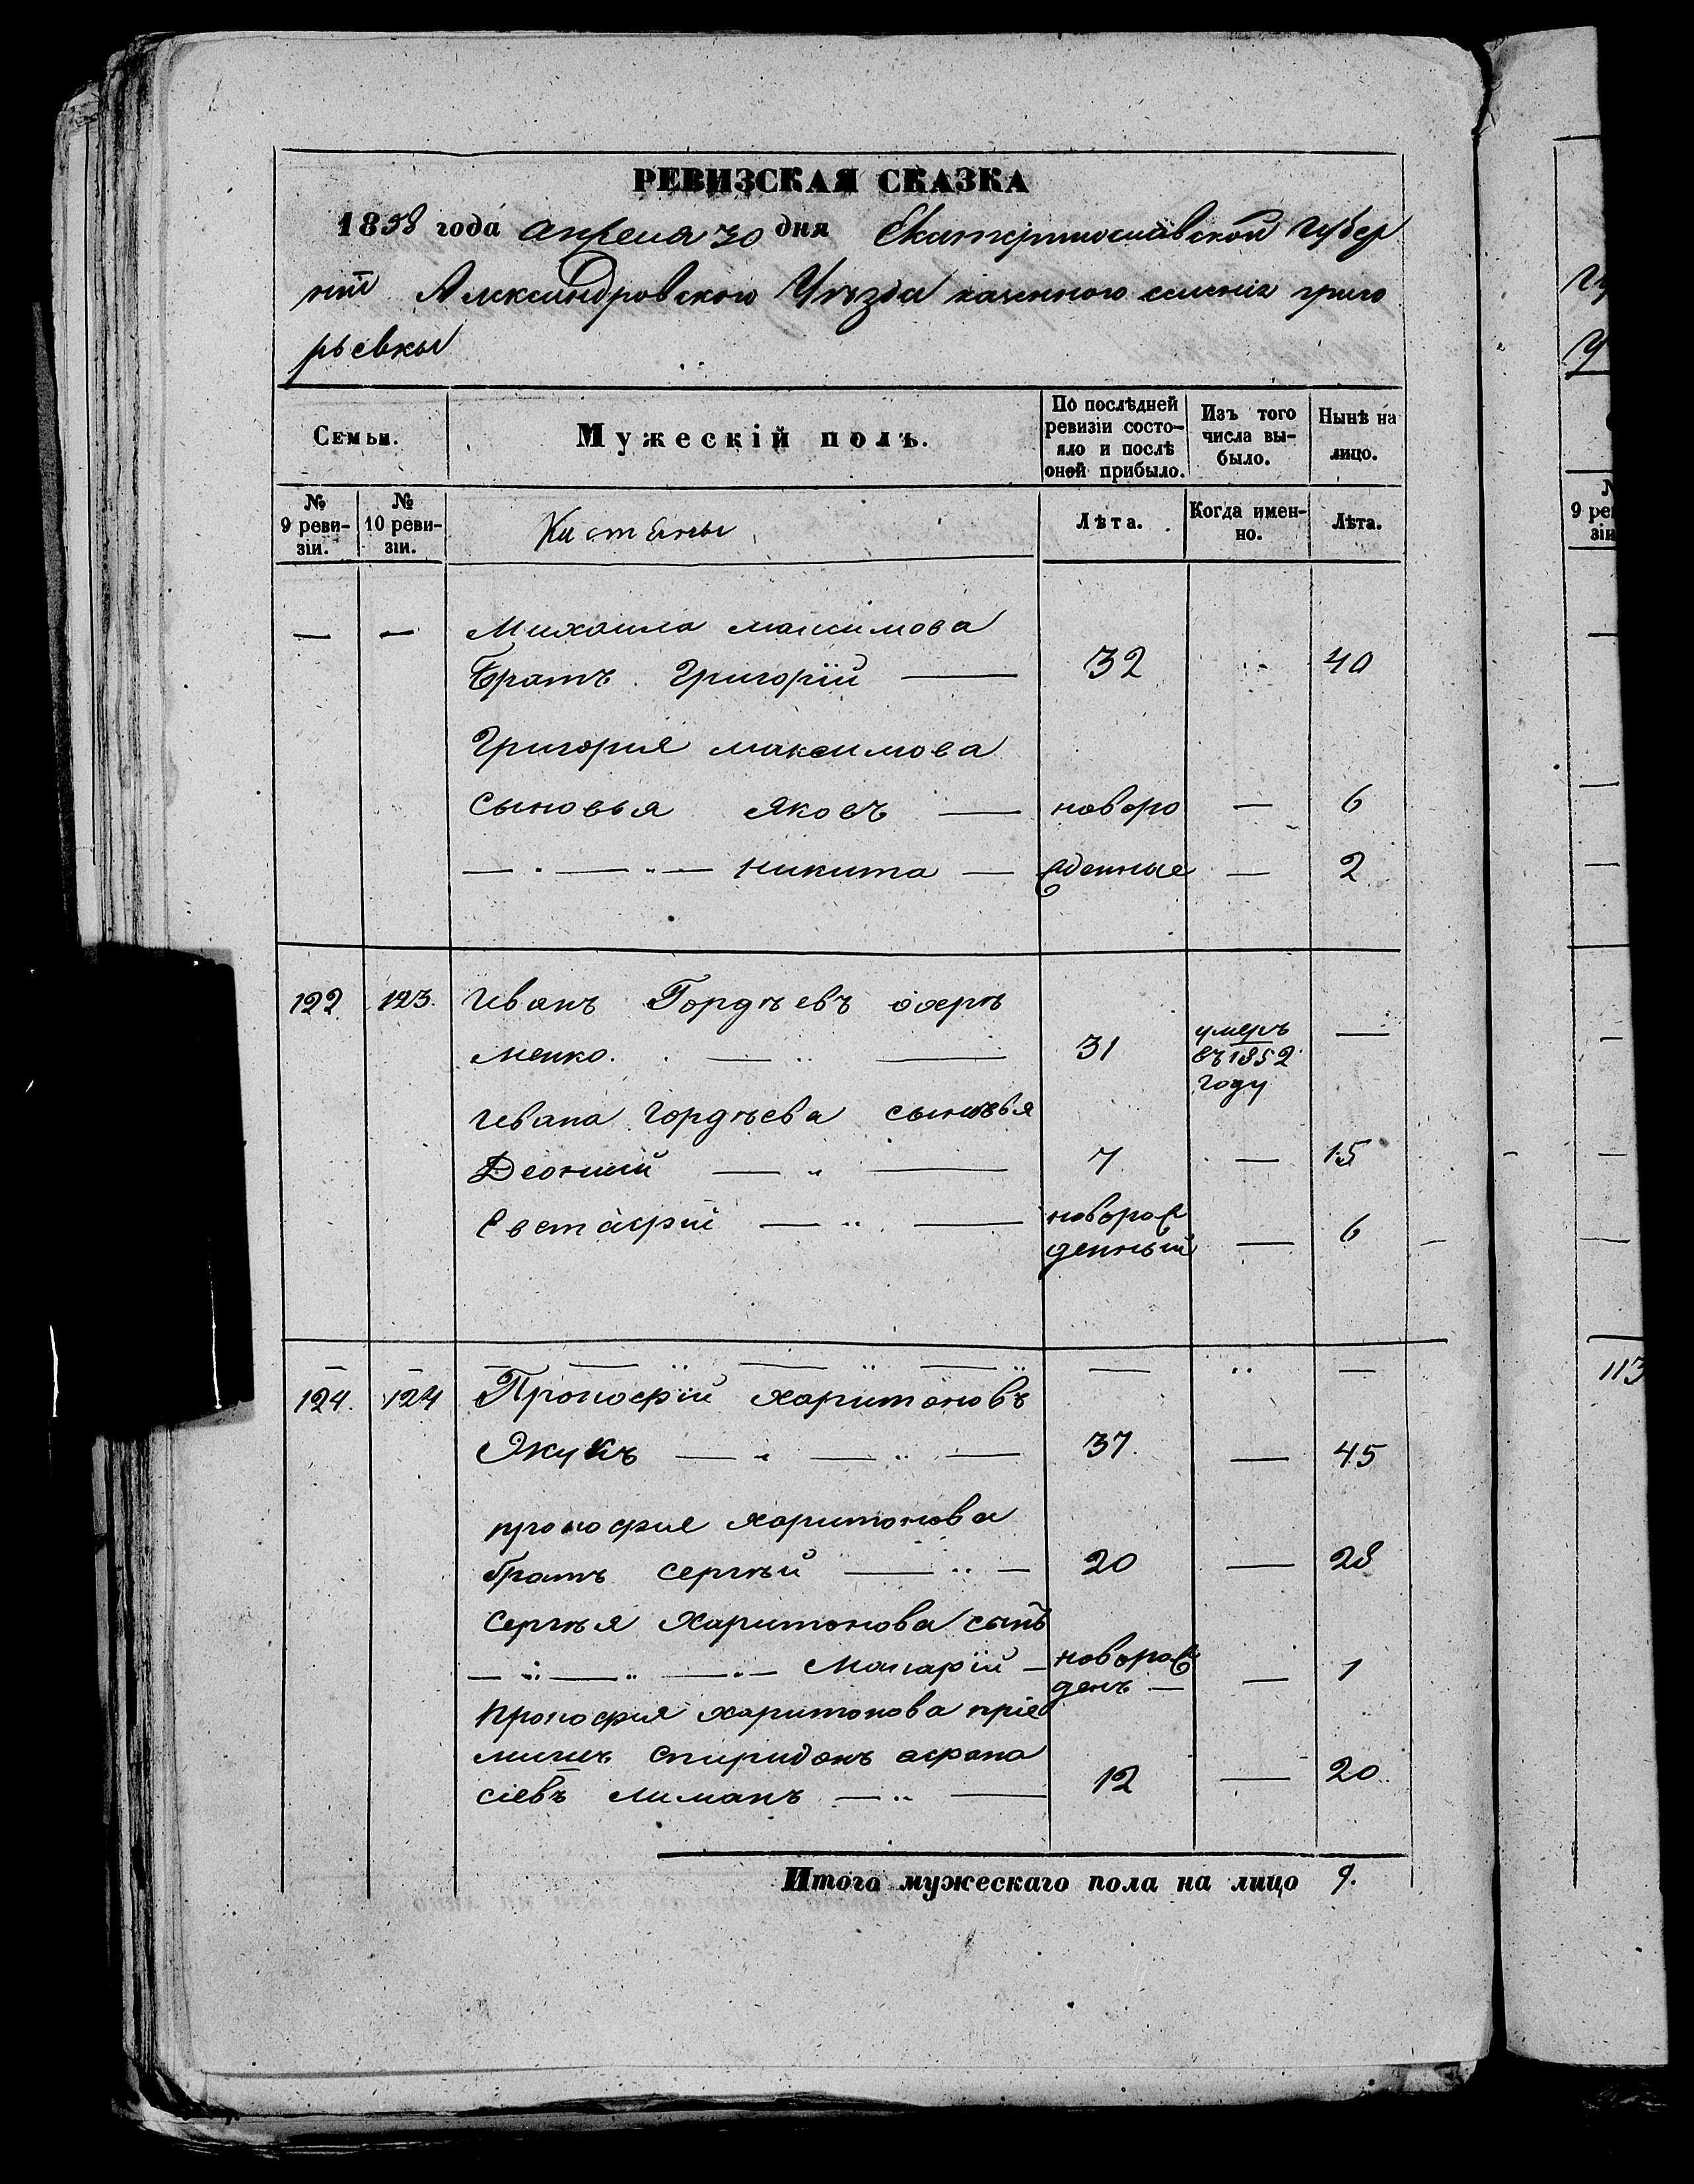 РЕВИЗСКАЯ СКАЗКА
1858 года апреля 30 дня Екатеринославской Губер
нiи Александровского Уезда казенного селения григо
рьевки
Семьи.
Мужескій полъ.
По послѣдней ревизіи состояло и послѣ оной прибыло.
Изъ того числа выбыло.
Нынѣ на лицо.
№ 9 ревизіи.
№ 10 ревизіи.
Лѣта.
Когда именно.
Лѣта.
— — Михаила максимова
Братъ Григорiй — 32 40
Григорiя максимова
сыновья Яковъ — новоро — 6
— " — " — никита — жденные — 2
122 123. Иванъ Гордѣевъ охері
менко. — " — 31 умеръ въ 1852 году —
Ивана Гордѣева сыновья
Леонтий — " — 7 — 15
Евстафiй — " — новорож денный — 6
124. 124 Прокофiй харитоновъ
Жукъ — " — " — 37. — 45
прокофия харитонова
братъ сергѣй — " — 20 — 28
сергѣя Харитонова сынъ
— " — " — " — Макарiй — новорож денъ — — 1
прокофия харитонова прiе
мышъ спиридонъ афана
сiевъ лиманъ — " — 12 — 20
Итого мужескаго пола на лицо 9.
113